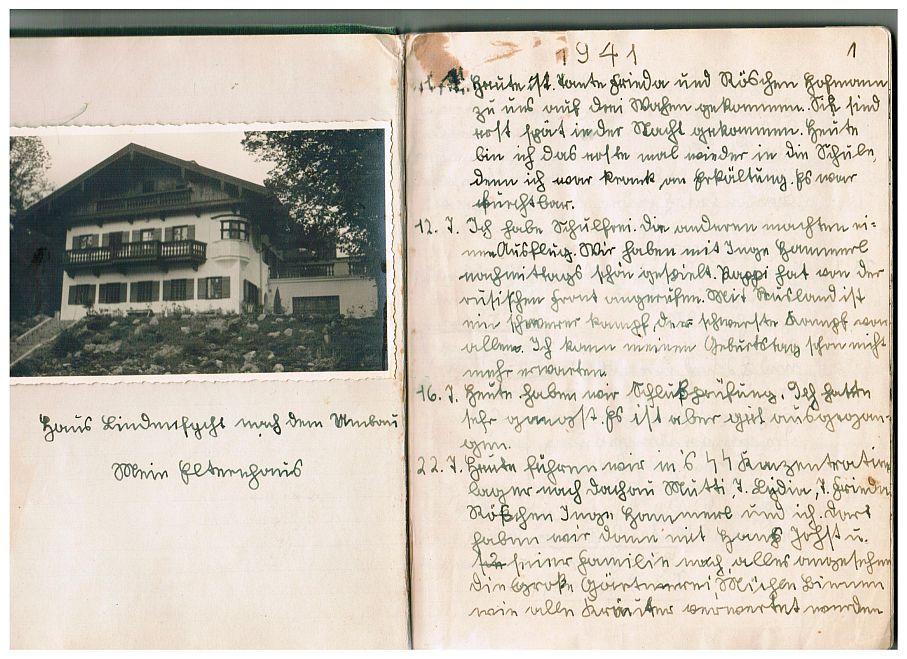 Haus Lindenfycht nach dem Umbau
Mein Elternhaus
1941
1
Heute ist Tante Frieda und Röschen Hofmann
zu uns auf drei Wochen gekommen. Sie sind
erst spät in der Nacht gekommen. Heute
bin ich das erste mal wieder in die Schule,
denn ich war krank an Erkältung. Es war
furchtbar.
12. 7. Ich habe Schulfrei. Die anderen machten ei-
nen Ausflug. Wir haben mit Inge Hammerl
nachmittags schön gespielt. Pappi hat von der
rusischen Front angerufen. Mit Rusland ist
ein schwerer Kampf, der schwerste Kampf von
allen. Ich kann meinen Geburtstag schon nicht
mehr erwarten.
16. 7. Heute haben wir Schlußprüfung. Ich hatte
sehr gangst. Es ist aber gut ausgegan-
gen.
22. 7. Heute fuhren wir in's SS Konzentration
lager nach Dachau Mutti, T. Lydia, T. Frieda,
Röschen Inge Hammerl und ich. Dort
haben wir dann mit Hans Johst u.
seiner Familie noch alles angesehen
die große Gärtnerei, Mühle Bienen
wie alle Kräuter verwertet wurden